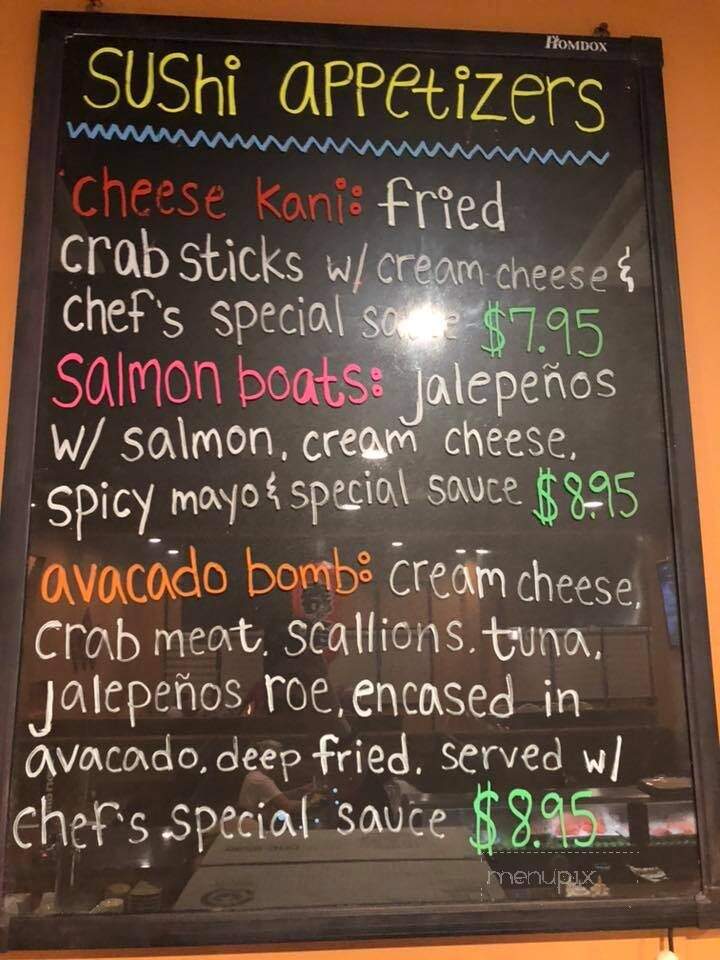 HOMDOX
sushi appetizers
cheese kani: fried
crab sticks w/ cream cheese &
chef's special sauce $7.95
salmon boats: jalepeños
w/ salmon, cream cheese,
spicy mayo & special sauce $8.95
avacado bomb: cream cheese,
crab meat, scallions, tuna,
jalepeños, roe, encased in
avacado, deep fried. served w/
chef's special sauce $8.95
menupix